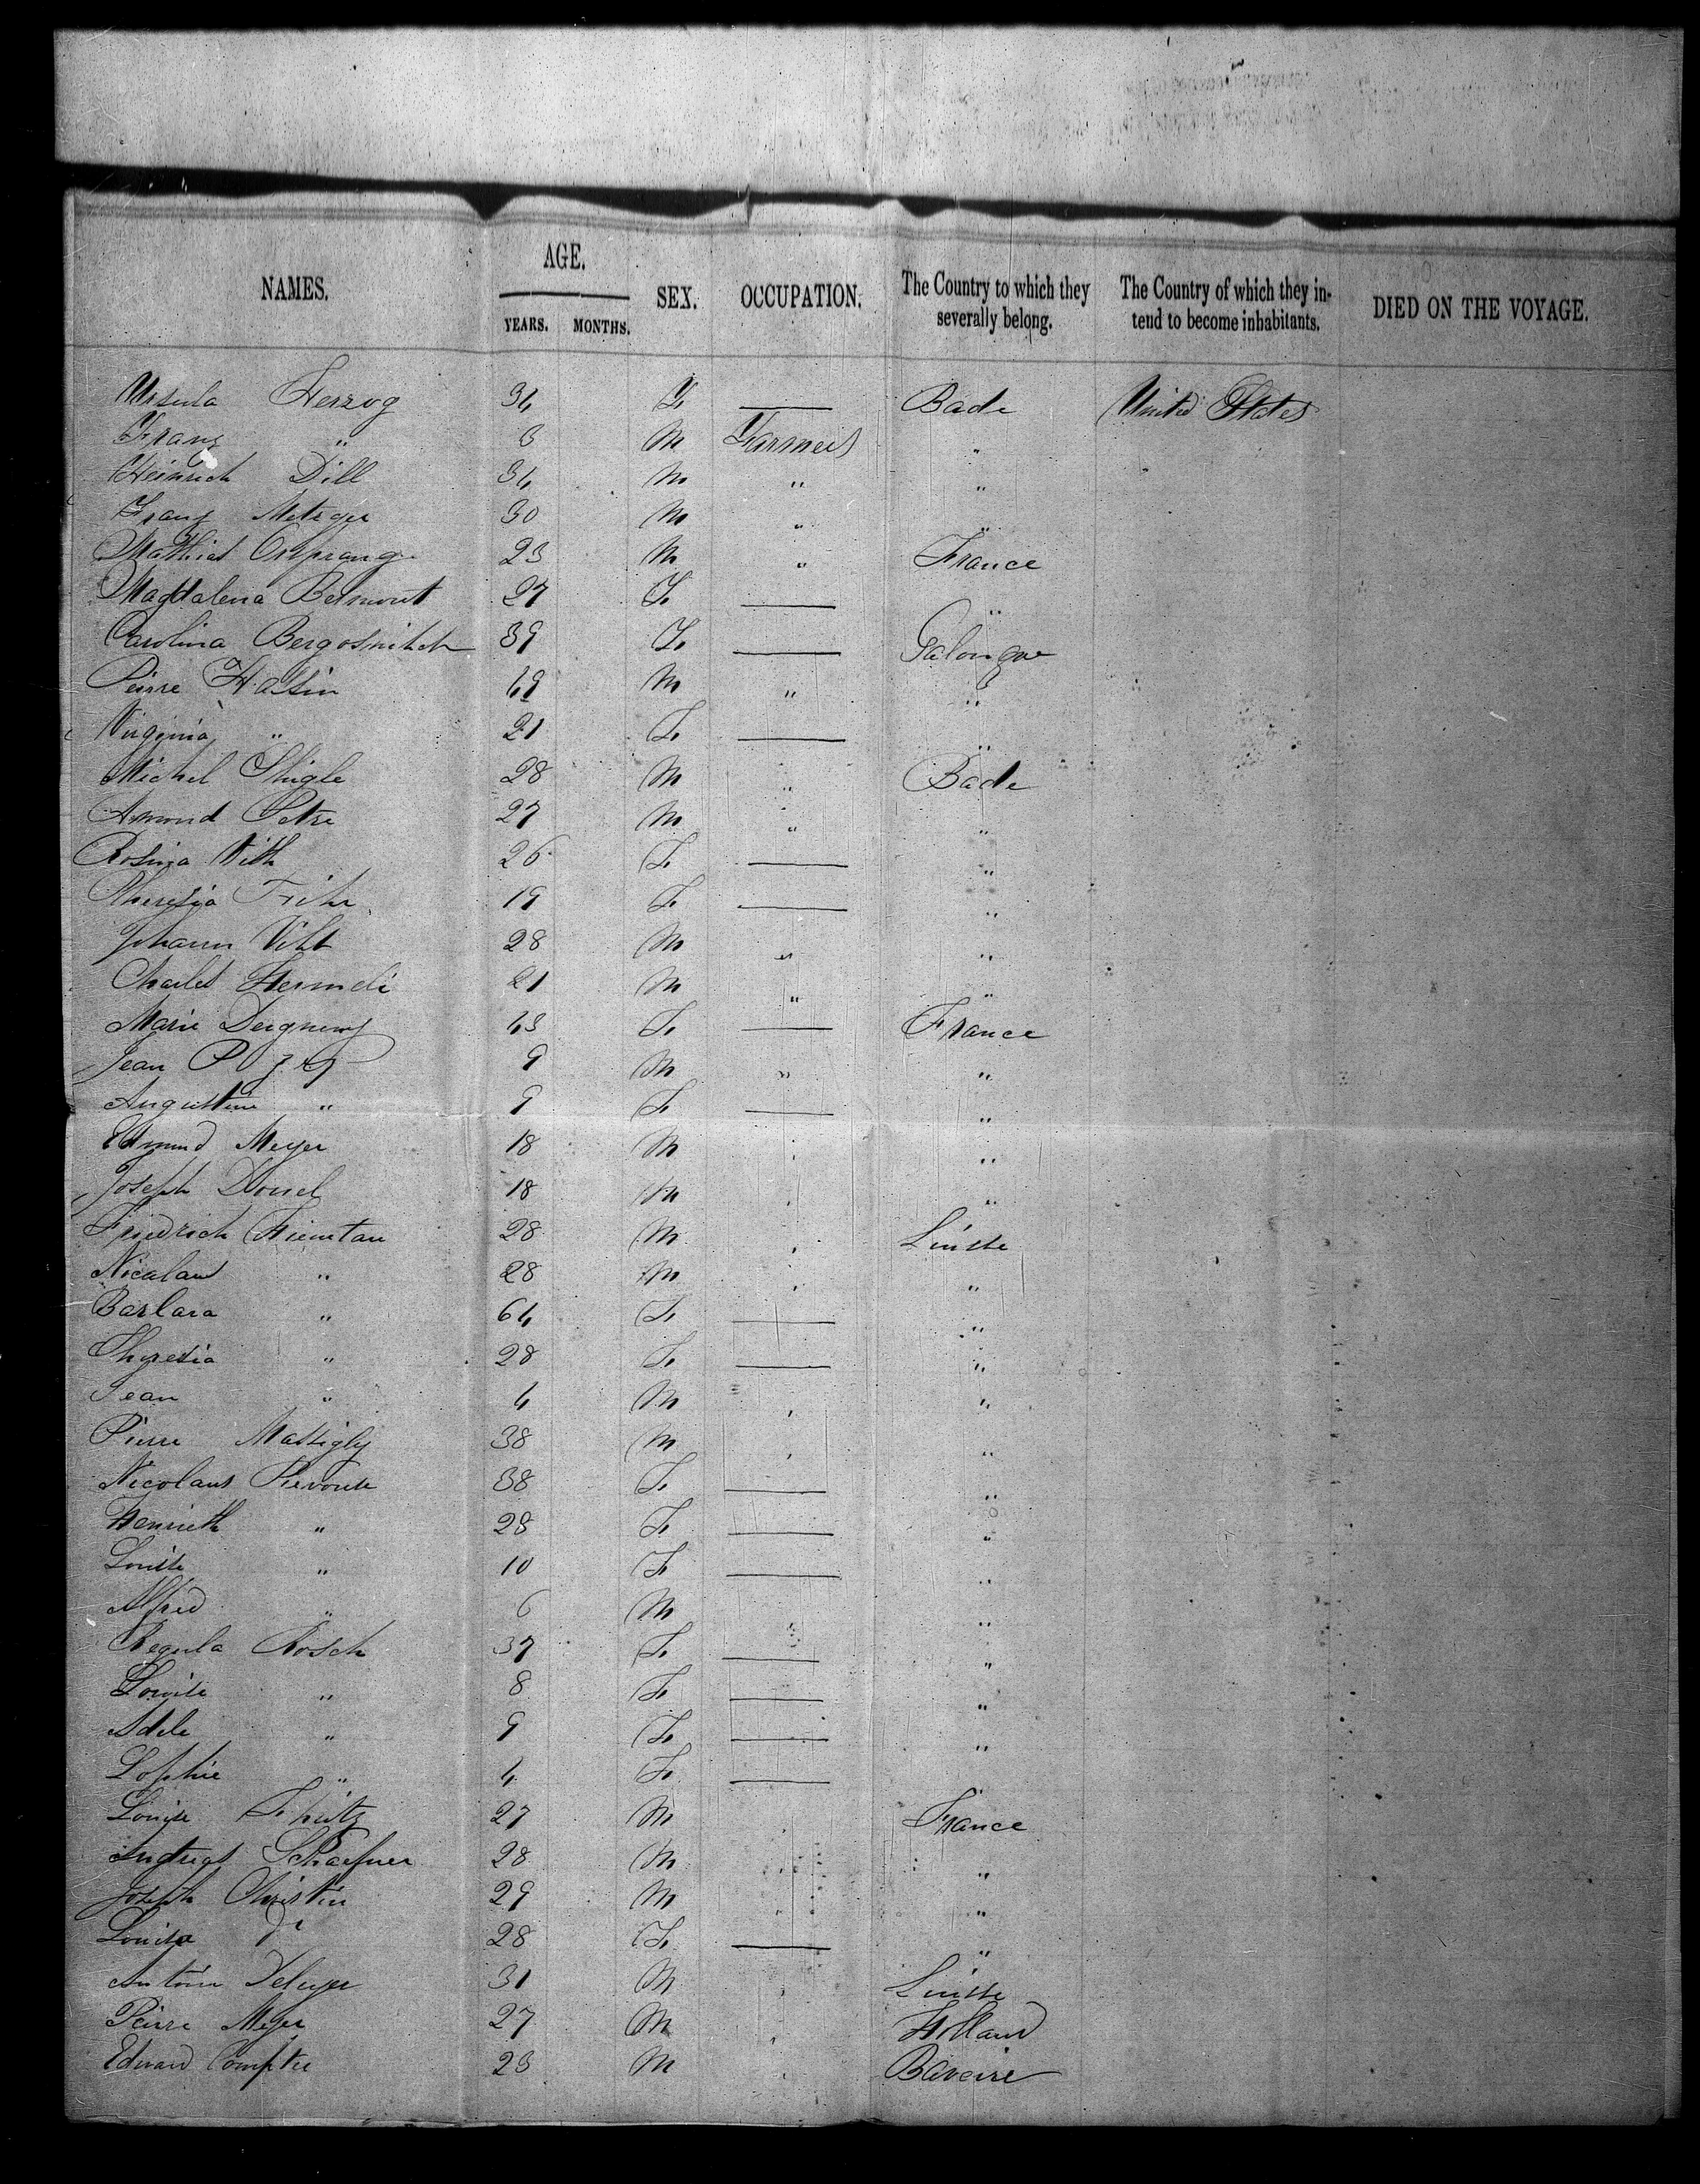 NAMES. AGE. YEARS. MONTHS. SEX. OCCUPATION. The Country to which they severally belong. The Country of which they intend to become inhabitants. DIED ON THE VOYAGE.
Ursula Herzog 34 F — Bade United States
Franz " 3 M Farmers "
Heinrich Dill 34 M " "
Franz Metzger 30 M " "
Mathias 23 M " France
Magdalena Belmont 27 F — "
Carolina 39 F —
Pierre Hassin 49 M " "
Virginia " 21 F — "
Michel 28 M " Bade
Amond Petre 27 M " "
Rosina Vith 26 F — "
Theresia 19 F — "
Johann Vitt 28 M " "
Charles 21 M " "
Marie 43 F — France
Jean 9 M " "
Augustine " 9 F — "
Edmund Meyer 18 M " "
Joseph 18 M " "
Friedrich 28 M " Suisse
Nicolaus " 28 M " "
Barbara " 64 F — "
Theresia " 28 F — "
Jean " 4 M " "
Pierre 38 M " "
Nicolaus 38 F — "
Henrieth " 28 F — "
Louise " 10 F — "
Alfred " 6 M " "
Regula Rosch 37 F — "
Louise " 8 F — "
Adele " 9 F — "
Sophie " 4 F —
Louise 27 M " France
Andreas Schaefner 28 M " "
Joseph Christin 29 M " "
Louisa do 28 F — "
Antoin 31 M " Suisse
Pierre Meyer 27 M " Holland
Edward 23 M " Baveire